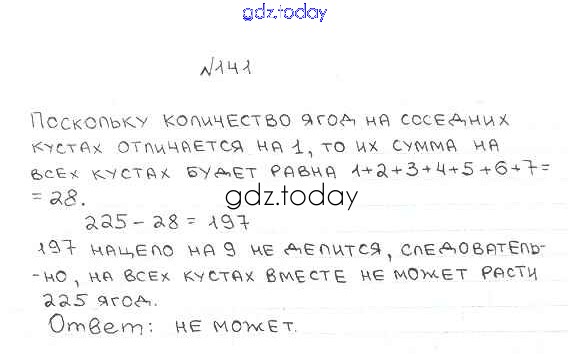 gdz.today
№141
ПОСКОЛЬКУ КОЛИЧЕСТВО ЯГОД НА СОСЕДНИХ
КУСТАХ ОТЛИЧАЕТСЯ НА 1, ТО ИХ СУММА НА
ВСЕХ КУСТАХ БУДЕТ РАВНА 1+2+3+4+5+6+7=
=28.
gdz.today
225-28=197
197 НАЦЕЛО НА 9 НЕ ДЕЛИТСЯ, СЛЕДОВАТЕЛЬ-
-НО, НА ВСЕХ КУСТАХ ВМЕСТЕ НЕ МОЖЕТ РАСТИ
225 ЯГОД.
Ответ: НЕ МОЖЕТ.
gdz.today